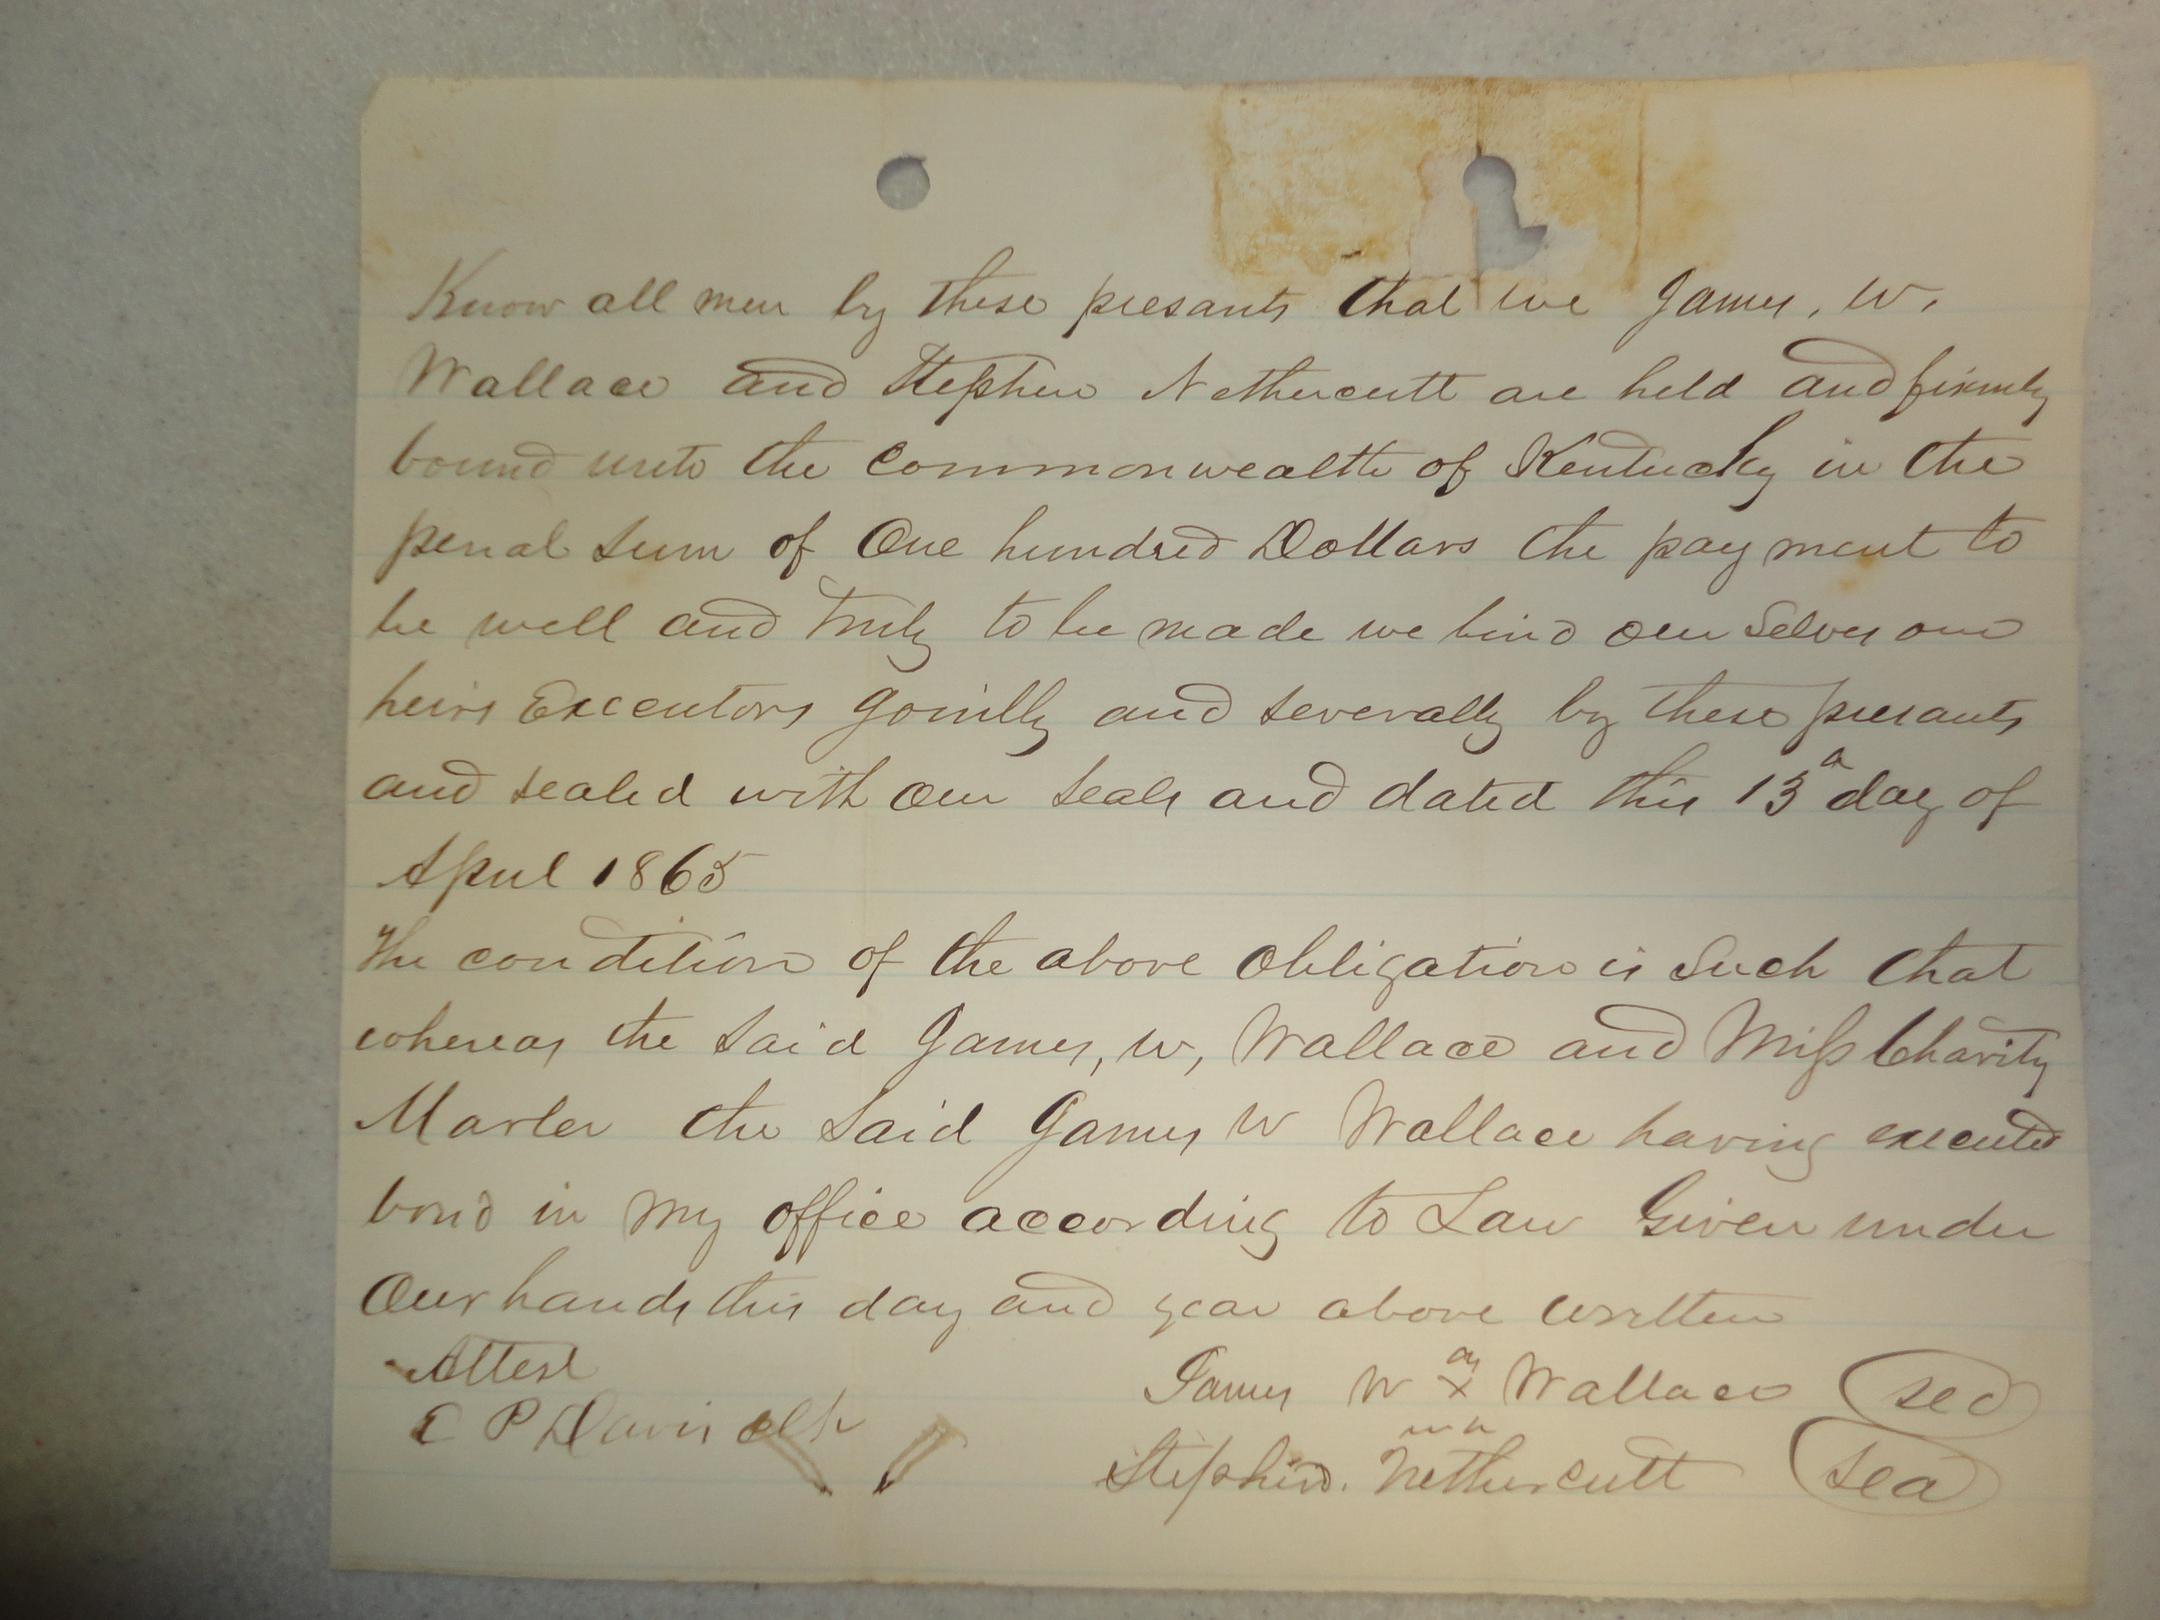 Know all men by these presants that we James, W,
Wallace and Stephen Nethercutt are held and firmly
bound unto the commonwealth of Kentucky in the
penal sum of One hundred Dollars the pay ment to
be well and truly to be made we bind our Selves our
heirs Executors Jointly and severally by these presants
and sealed with our seals and dated this 13 day of
April 1865
The condition of the above Obligation is Such that
whereas the said James, W, Wallace and Miss Charity
Marler the said James W Wallace having executed
bond in my office according to Law Given under
Our hands this day and year above written
Attest
James W x Wallace
Stephen. Nethercutt
E P Davis clk